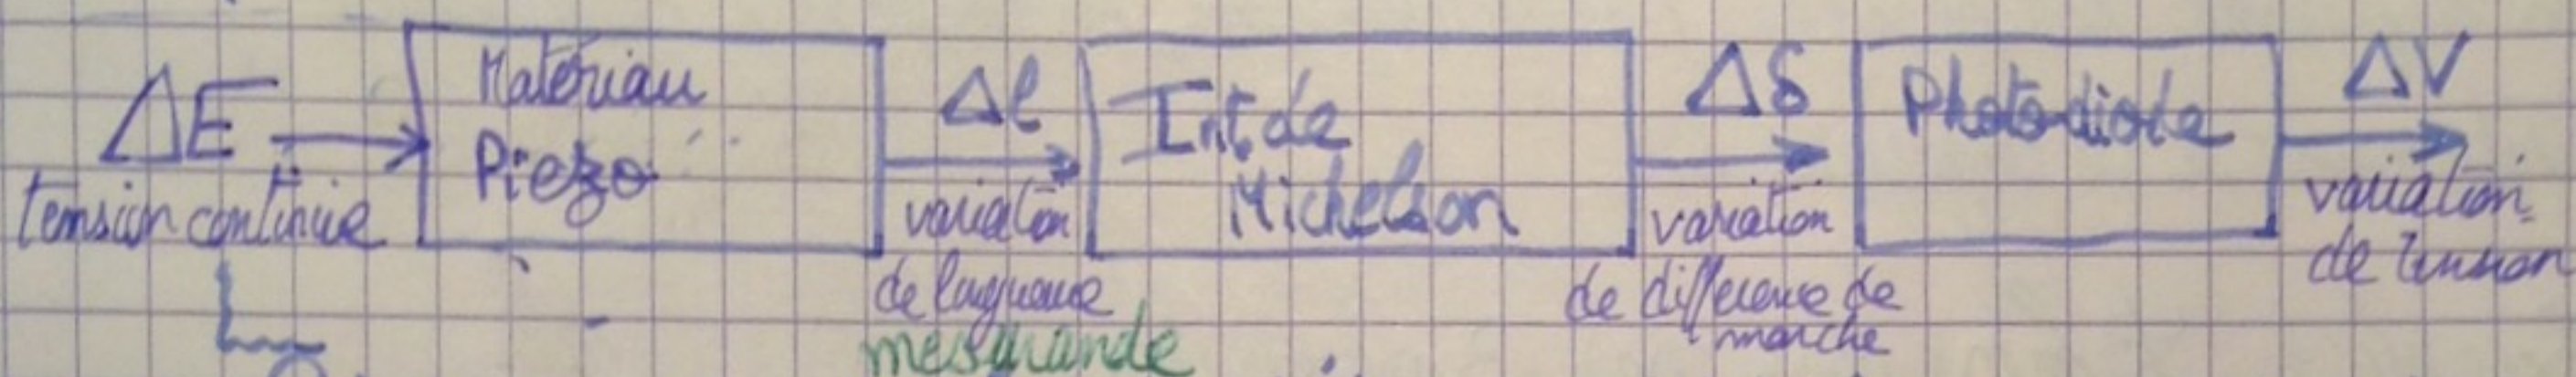 ΔE
tension continue
Matériau
Piézo
Δl
variation
de longueur
mesurande
Int. de
Michelson
Δδ
variation
de différence de
marche
Photodiode
ΔV
variation
de tension